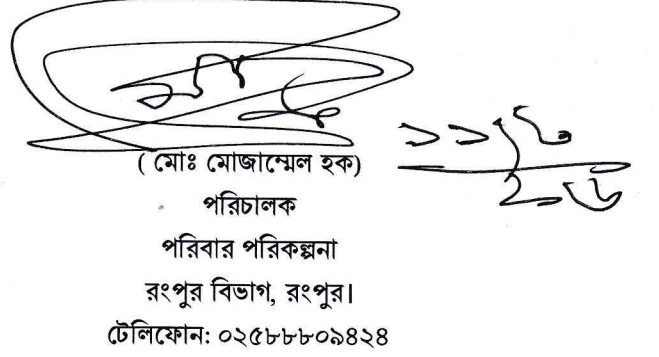 ( মোঃ মোজাম্মেল হক)
পরিচালক
পরিবার পরিকল্পনা
রংপুর বিভাগ, রংপুর।
টেলিফোন: ০২৫৮৮৮০৯৪২৪